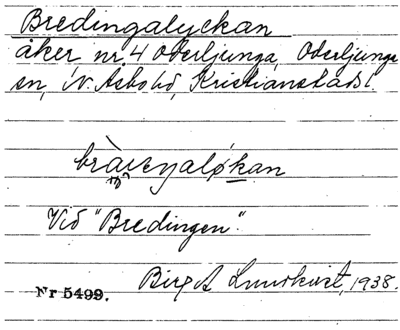 Bredingalyckan
åker nr 4 Oderljunga, Oderljunga
sn, N. Åsbo hd, Kristianstads l.
Vid "Bredingen".
Birgit Lundkvist, 1938.
Nr 5499.